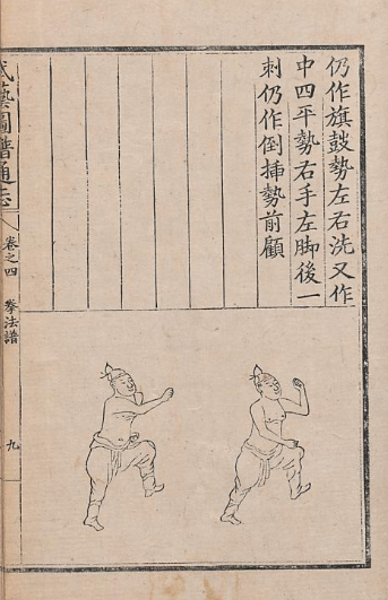 仍作旗鼓勢左右洗又作
中四平勢右手左脚後一
刺仍作倒揷勢前顧
武藝圖譜通志
卷之四
拳法譜
九